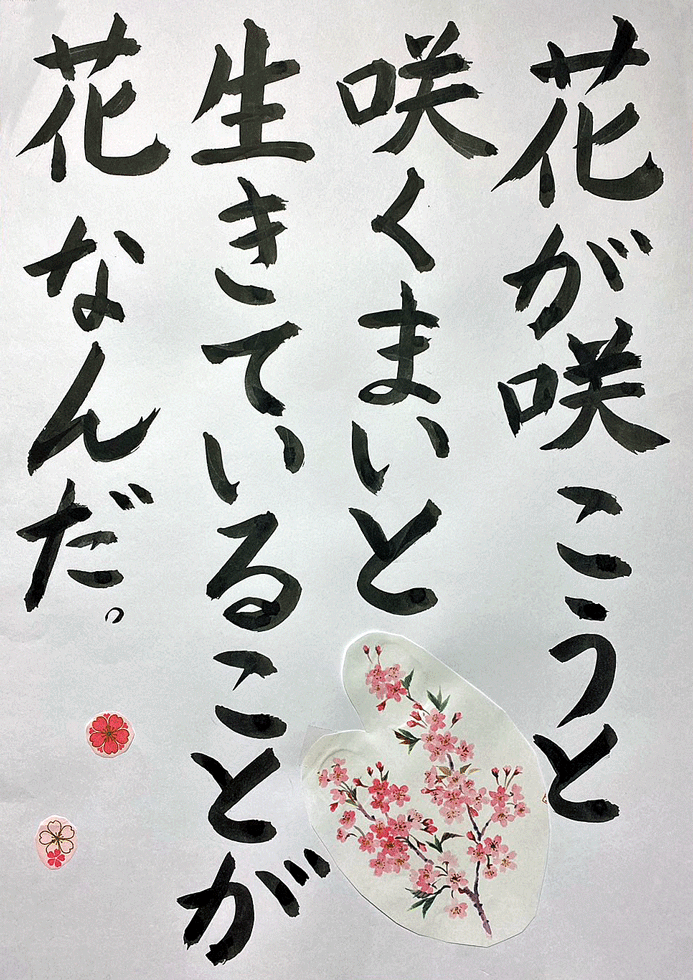 花が咲こうと
咲くまいと
生きていることが
花なんだ。